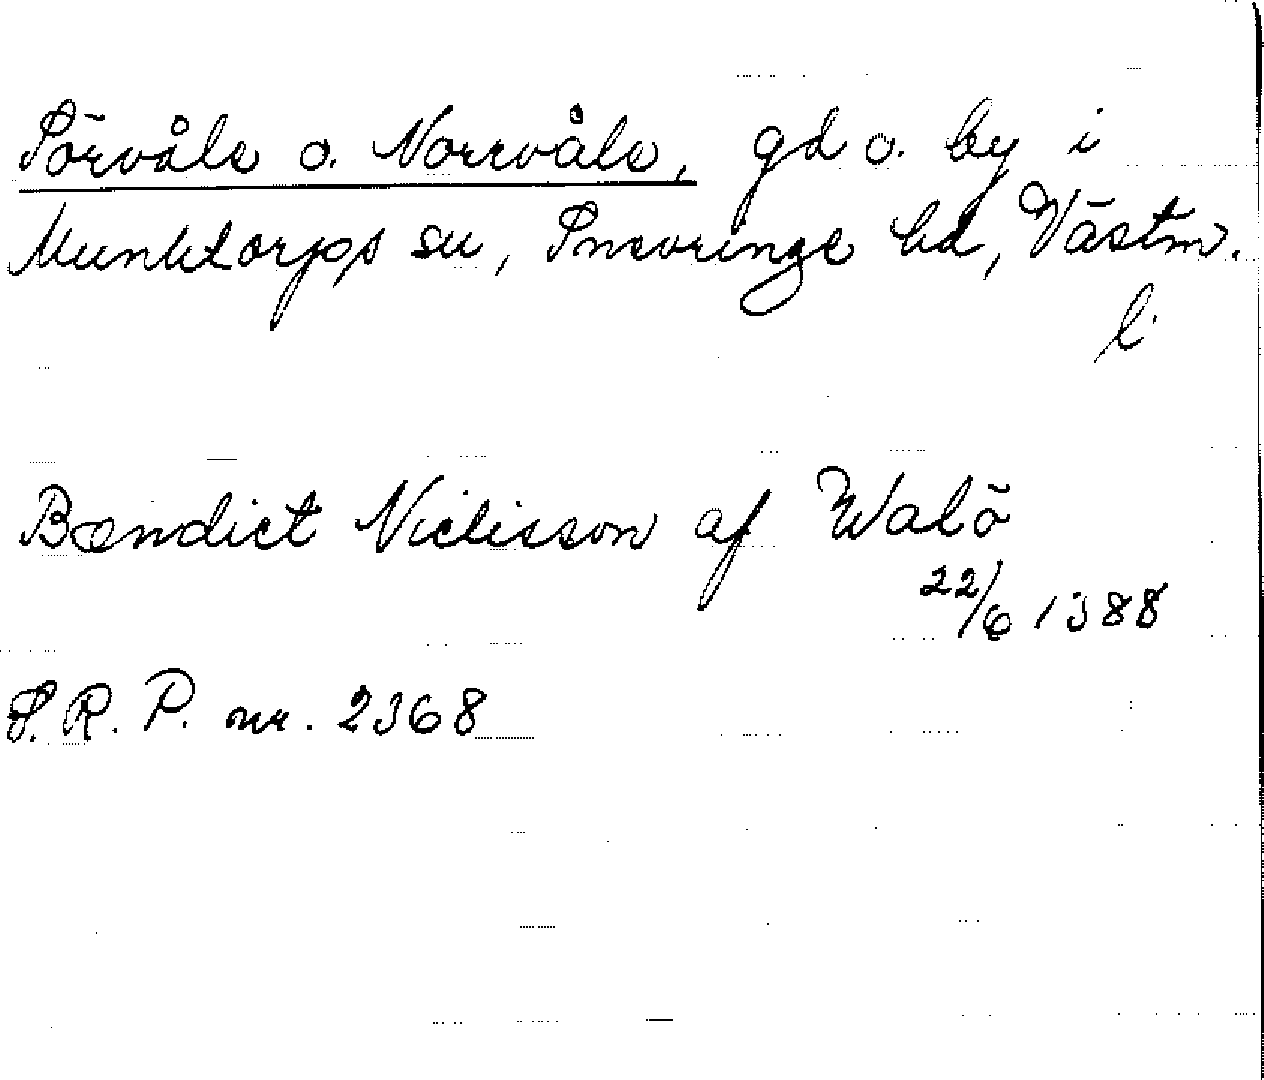 Sörvåle o. Norrvåle, gd o. by i
Munktorps sn, Snevringe hd, Västm.
l.
Bændict Niclisson af Walö
22/6 1388
S. R. P. nr. 2368